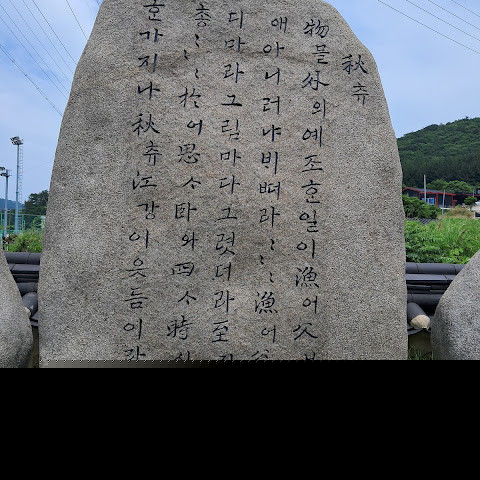 秋츄
物믈外외예조ᄒᆞᆫ일이漁어父부
애아니러냐ᄇᆡ떠라〻〻漁어
디마라그림마다그렷더라至지
총〻〻於어思ᄉᆞ臥와四ᄉᆞ時시
ᄒᆞᆫ가지나秋츄江강이읏듬이라